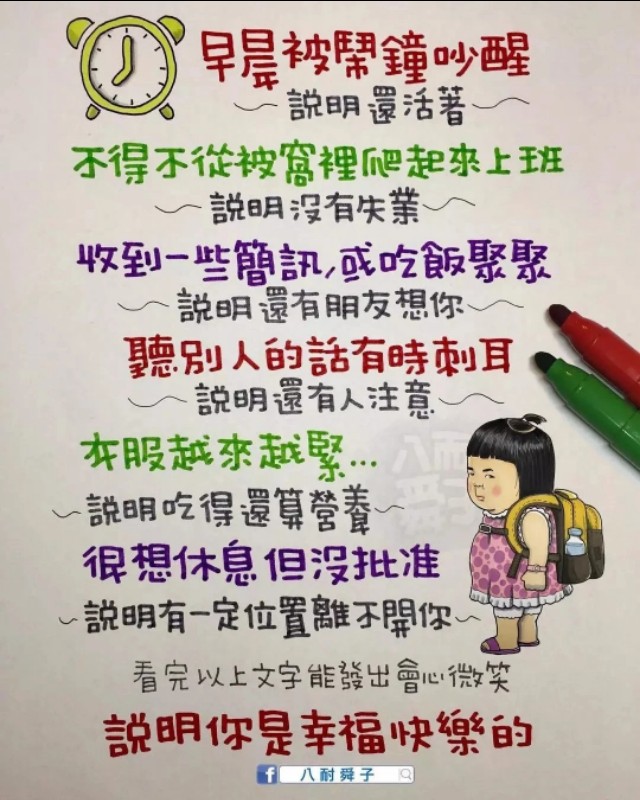 早晨被鬧鐘吵醒
說明還活著
不得不從被窩裡爬起來上班
說明沒有失業
收到一些簡訊,或吃飯聚聚
說明還有朋友想你
聽別人的話有時刺耳
說明還有人注意
衣服越來越緊...
說明吃得還算營養
很想休息但沒批准
說明有一定位置離不開你
看完以上文字能發出會心微笑
說明你是幸福快樂的
八耐舜子
八耐舜子